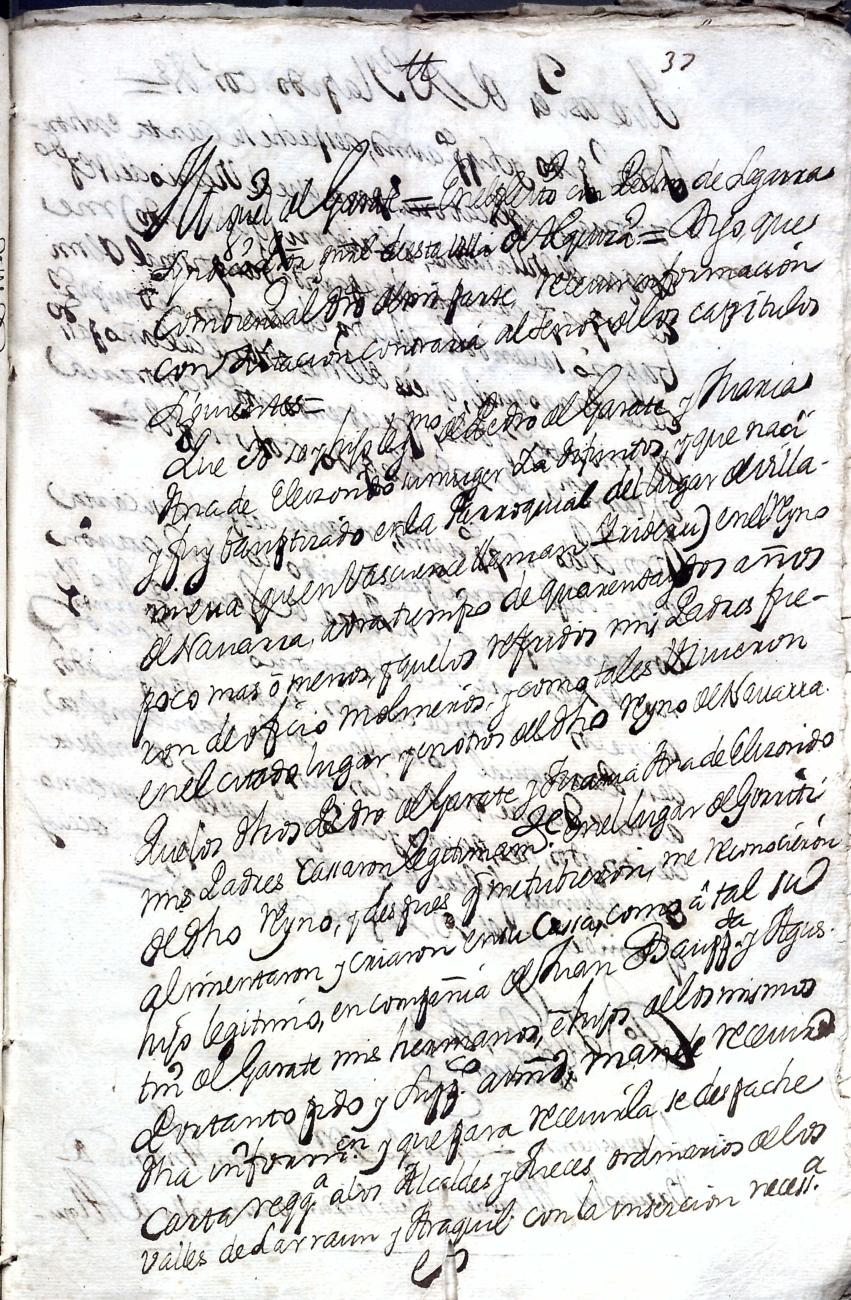 37
Miguel de Garate = En el pleito con Pedro de Legarra
Procurador gnrl de esta villa de = Digo que
combiene al dro de mi parte recevir informacion
con citacion contraria al tenor de los capitulos
siguientes =
Que io soy hijo legmo de Pedro de Garate y Maria
Ana de Elizondo su muger ya difuntos, y que naci
y fuy bauptizado en la Parroquial del lugar de villa-
nueva (que en Vascuence llaman Irideru) en el Reyno
de Navarra, avra tiempo de quarenta y dos años
poco mas ó menos, y que los referidos mis Padres fue-
ron de oficio molineros, y como tales vivieron
en el citado lugar y en otros del dho Reyno de Navarra.
Que los dhos Pedro de Garate y Maria Ana de Elizondo
mis Padres cassaron legitimamte en el lugar de Gorriti
de dho Reyno, y despues q me tubieron, me reconocieron
alimentaron y criaron en su Cassa, como â tal su
hijo legitimo, en compañia de Juan Bauptta y Agus-
tin de Garate mis hermanos, é hijos de los mismos
Por tanto pido y suppco a vmd, mande recevir
dha informn y que para recevirla se despache
Carta reqqa a los Alcaldes y Jueces ordinarios de los
valles de Larraun y Araquil con la insercion necess.a